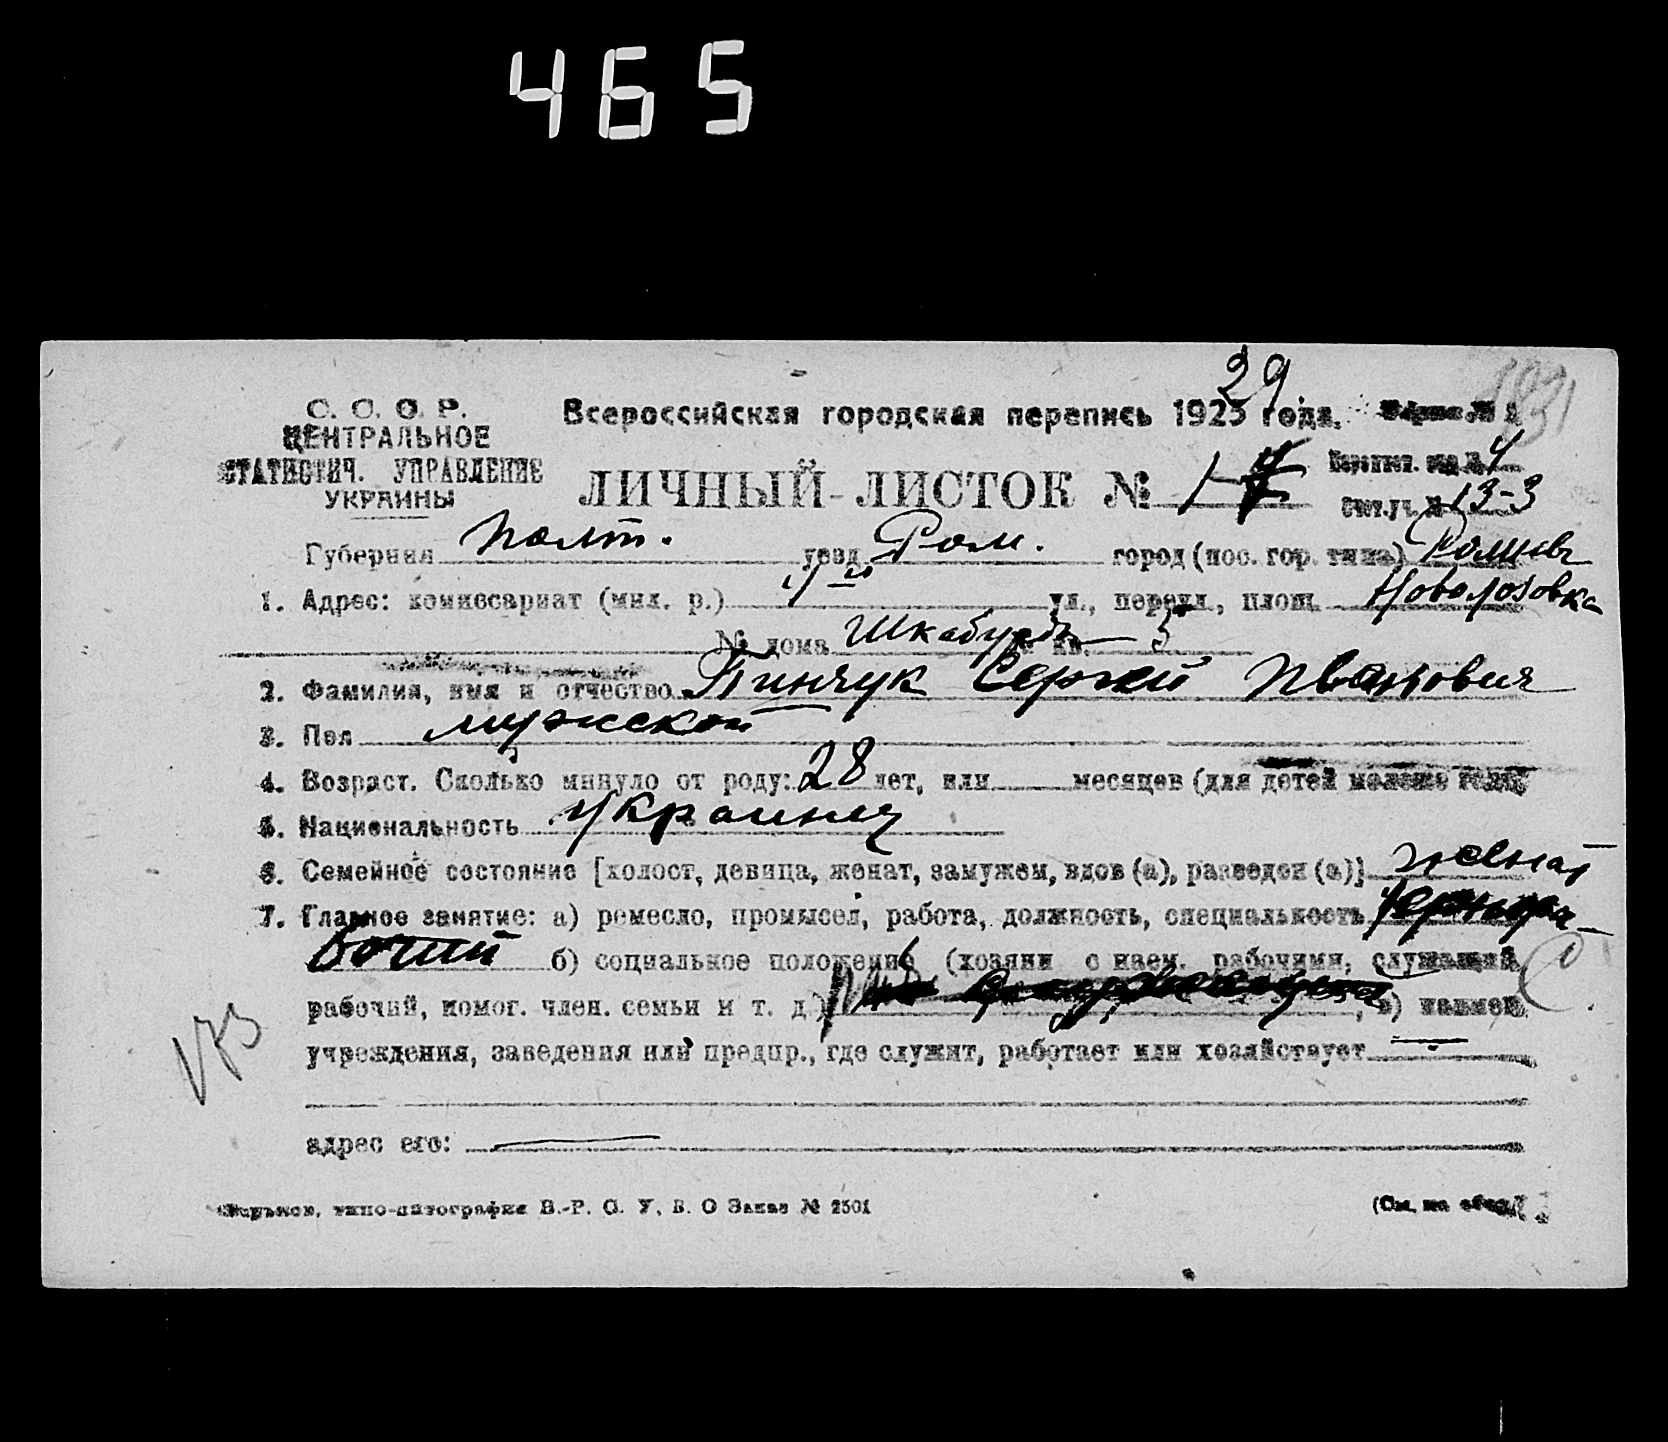 465
29
С. С. С. Р.
ЦЕНТРАЛЬНОЕ
СТАТИСТИЧ. УПРАВЛЕНИЕ
УКРАИНЫ
Всероссийская городская перепись 1923 года.
ЛИЧНЫЙ ЛИСТОК № 1
4
Счет. уч. № 13-3
Губерния Полт. уезд Ром. город (пос. гор. типа) Ромны
1. Адрес: комиссариат (мил. р.) ул., переул., площ.
№ дома кв. 5
2. Фамилия, имя и отчество Пинчук Сергей Иванович
3. Пол мужской
4. Возраст. Сколько минуло от роду: 28 лет, или месяцев (для детей моложе года)
5. Национальность Украинец
6. Семейное состояние [холост, девица, женат, замужем, вдов (а), разведен (а)] женат
7. Главное занятие: а) ремесло, промысел, работа, должность, специальность Чернора-
бочий б) социальное положение (хозяин с наем. рабочими, служащий,
рабочий, помог. член. семьи и т. д.) , в) наимен.
учреждения, заведения или предпр., где служит, работает или хозяйствует
адрес его:
Харьков, типо-литография В.-Р. С. У. В. О Заказ № 2501
(См. на
173